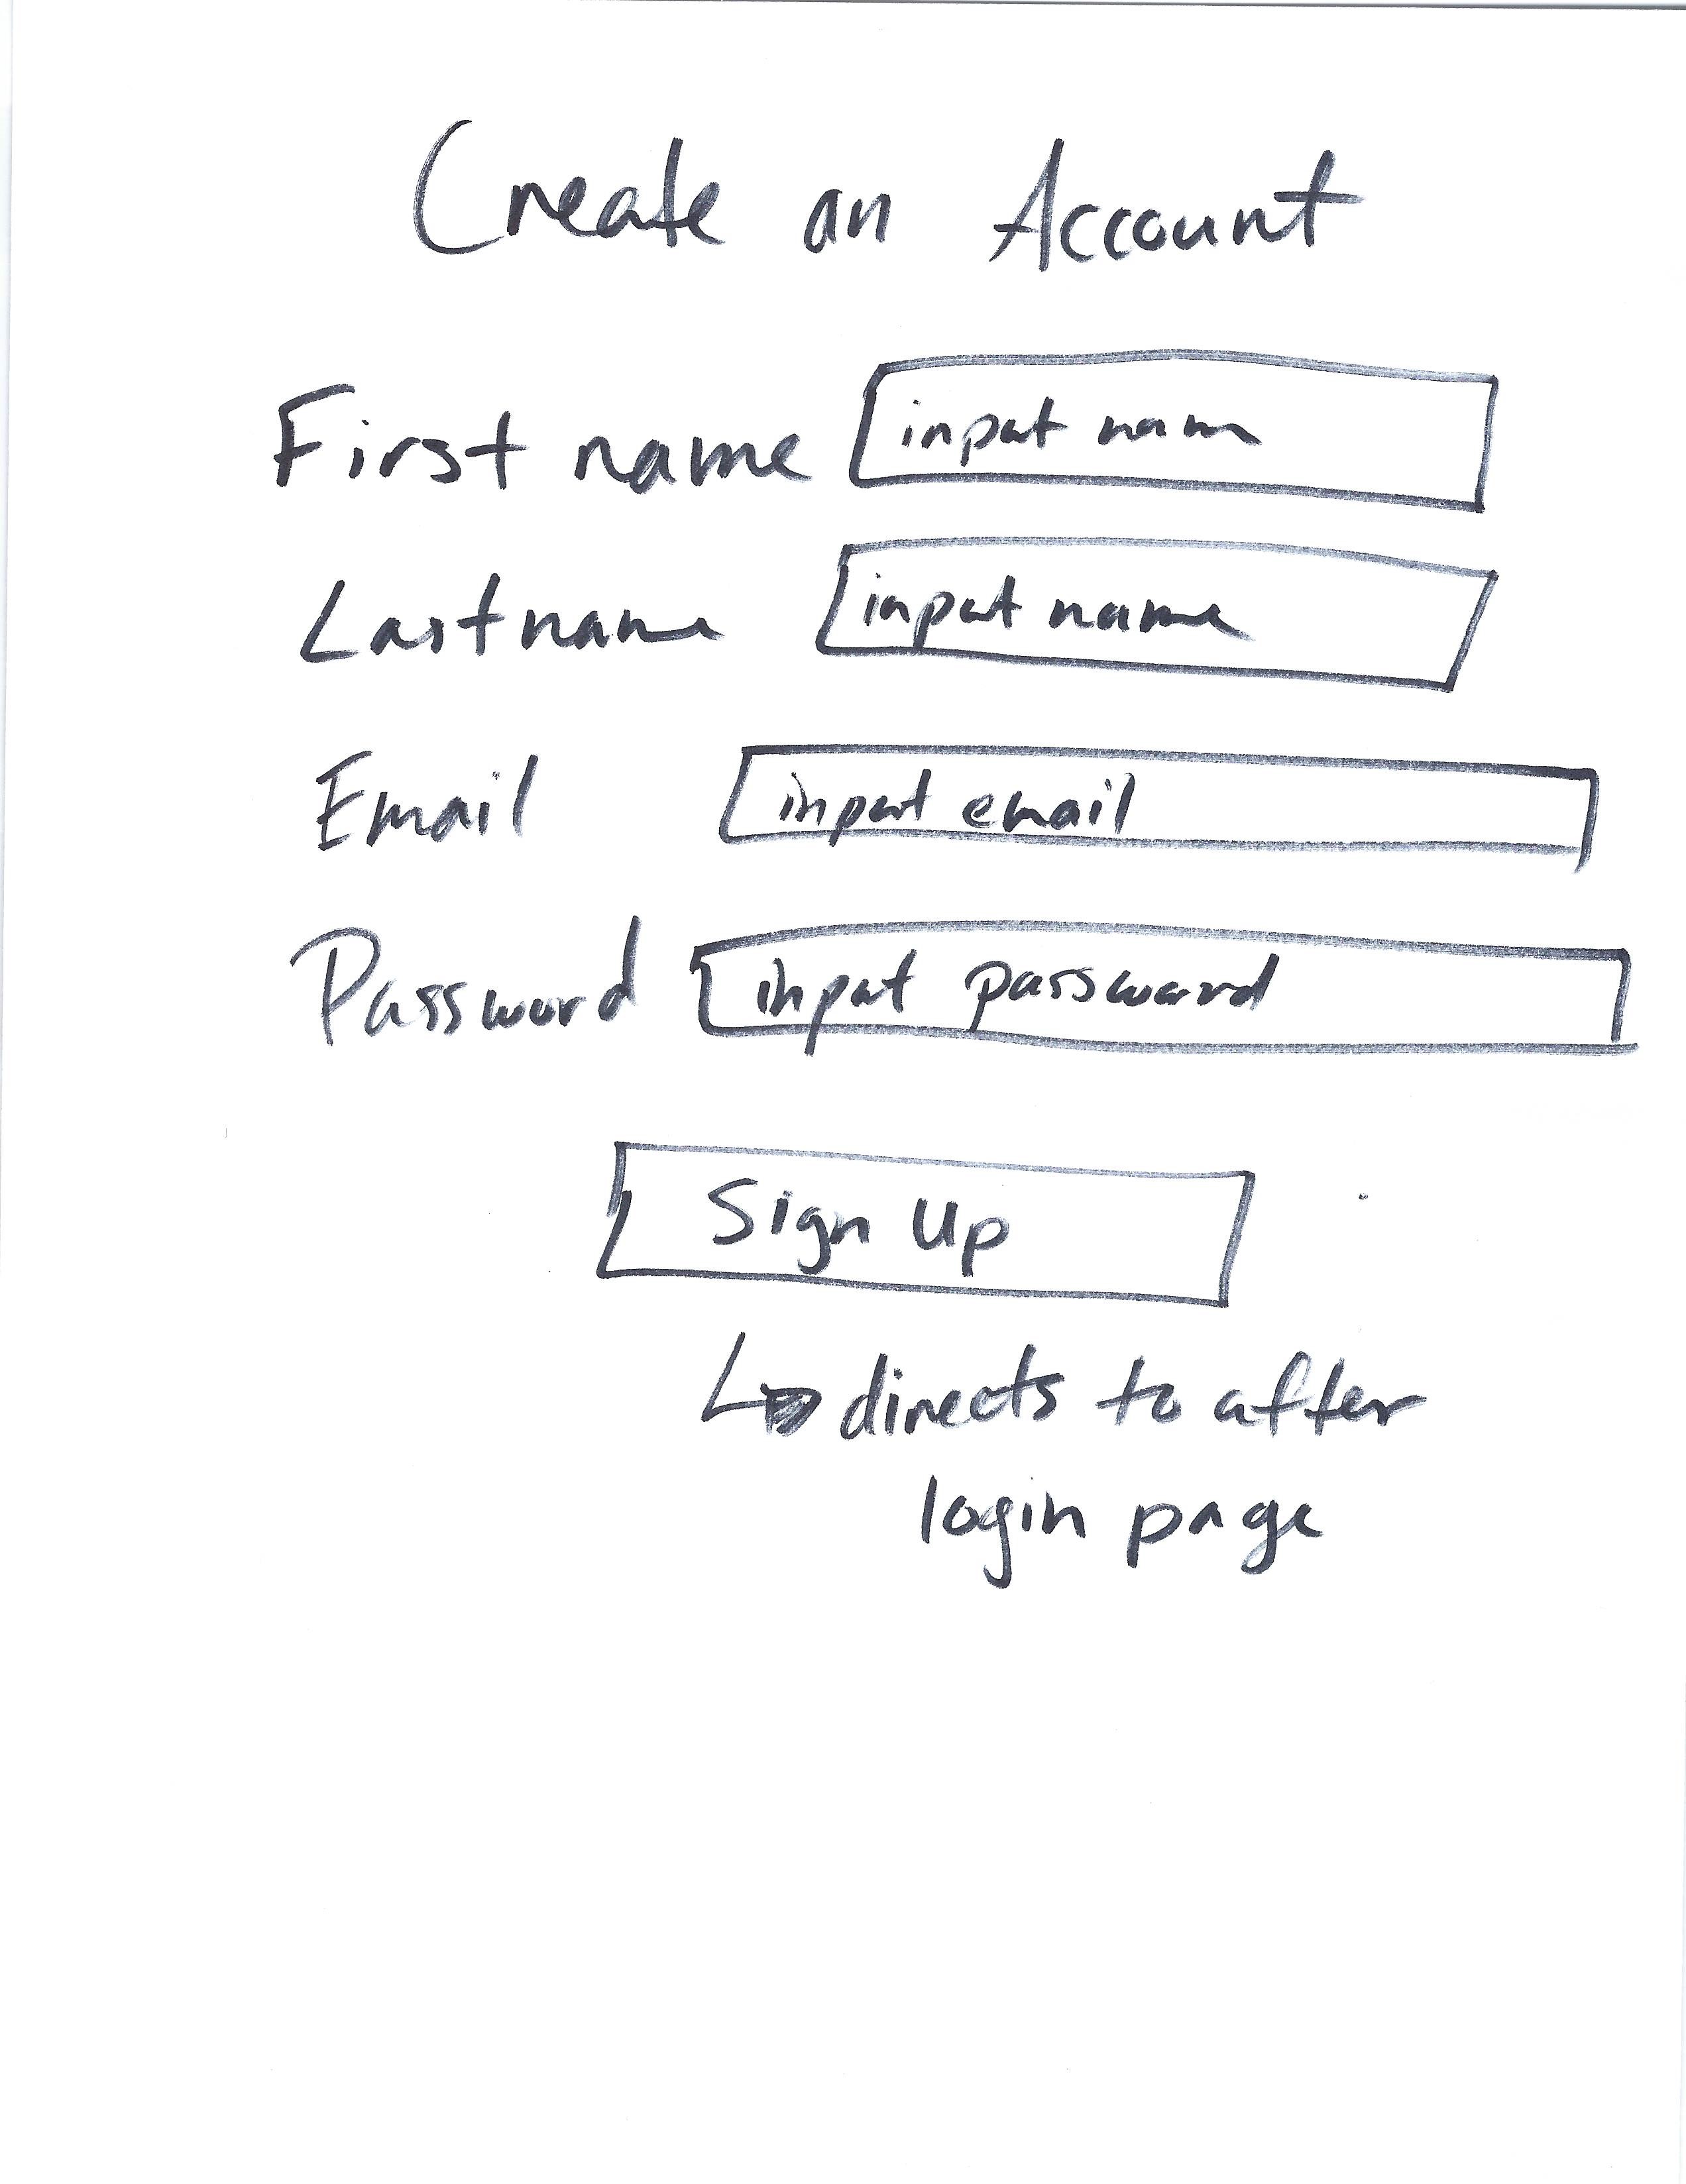 Create an Account
First name input nam
Last name input name
Email input email
Password input password
Sign Up
directs to after
login page